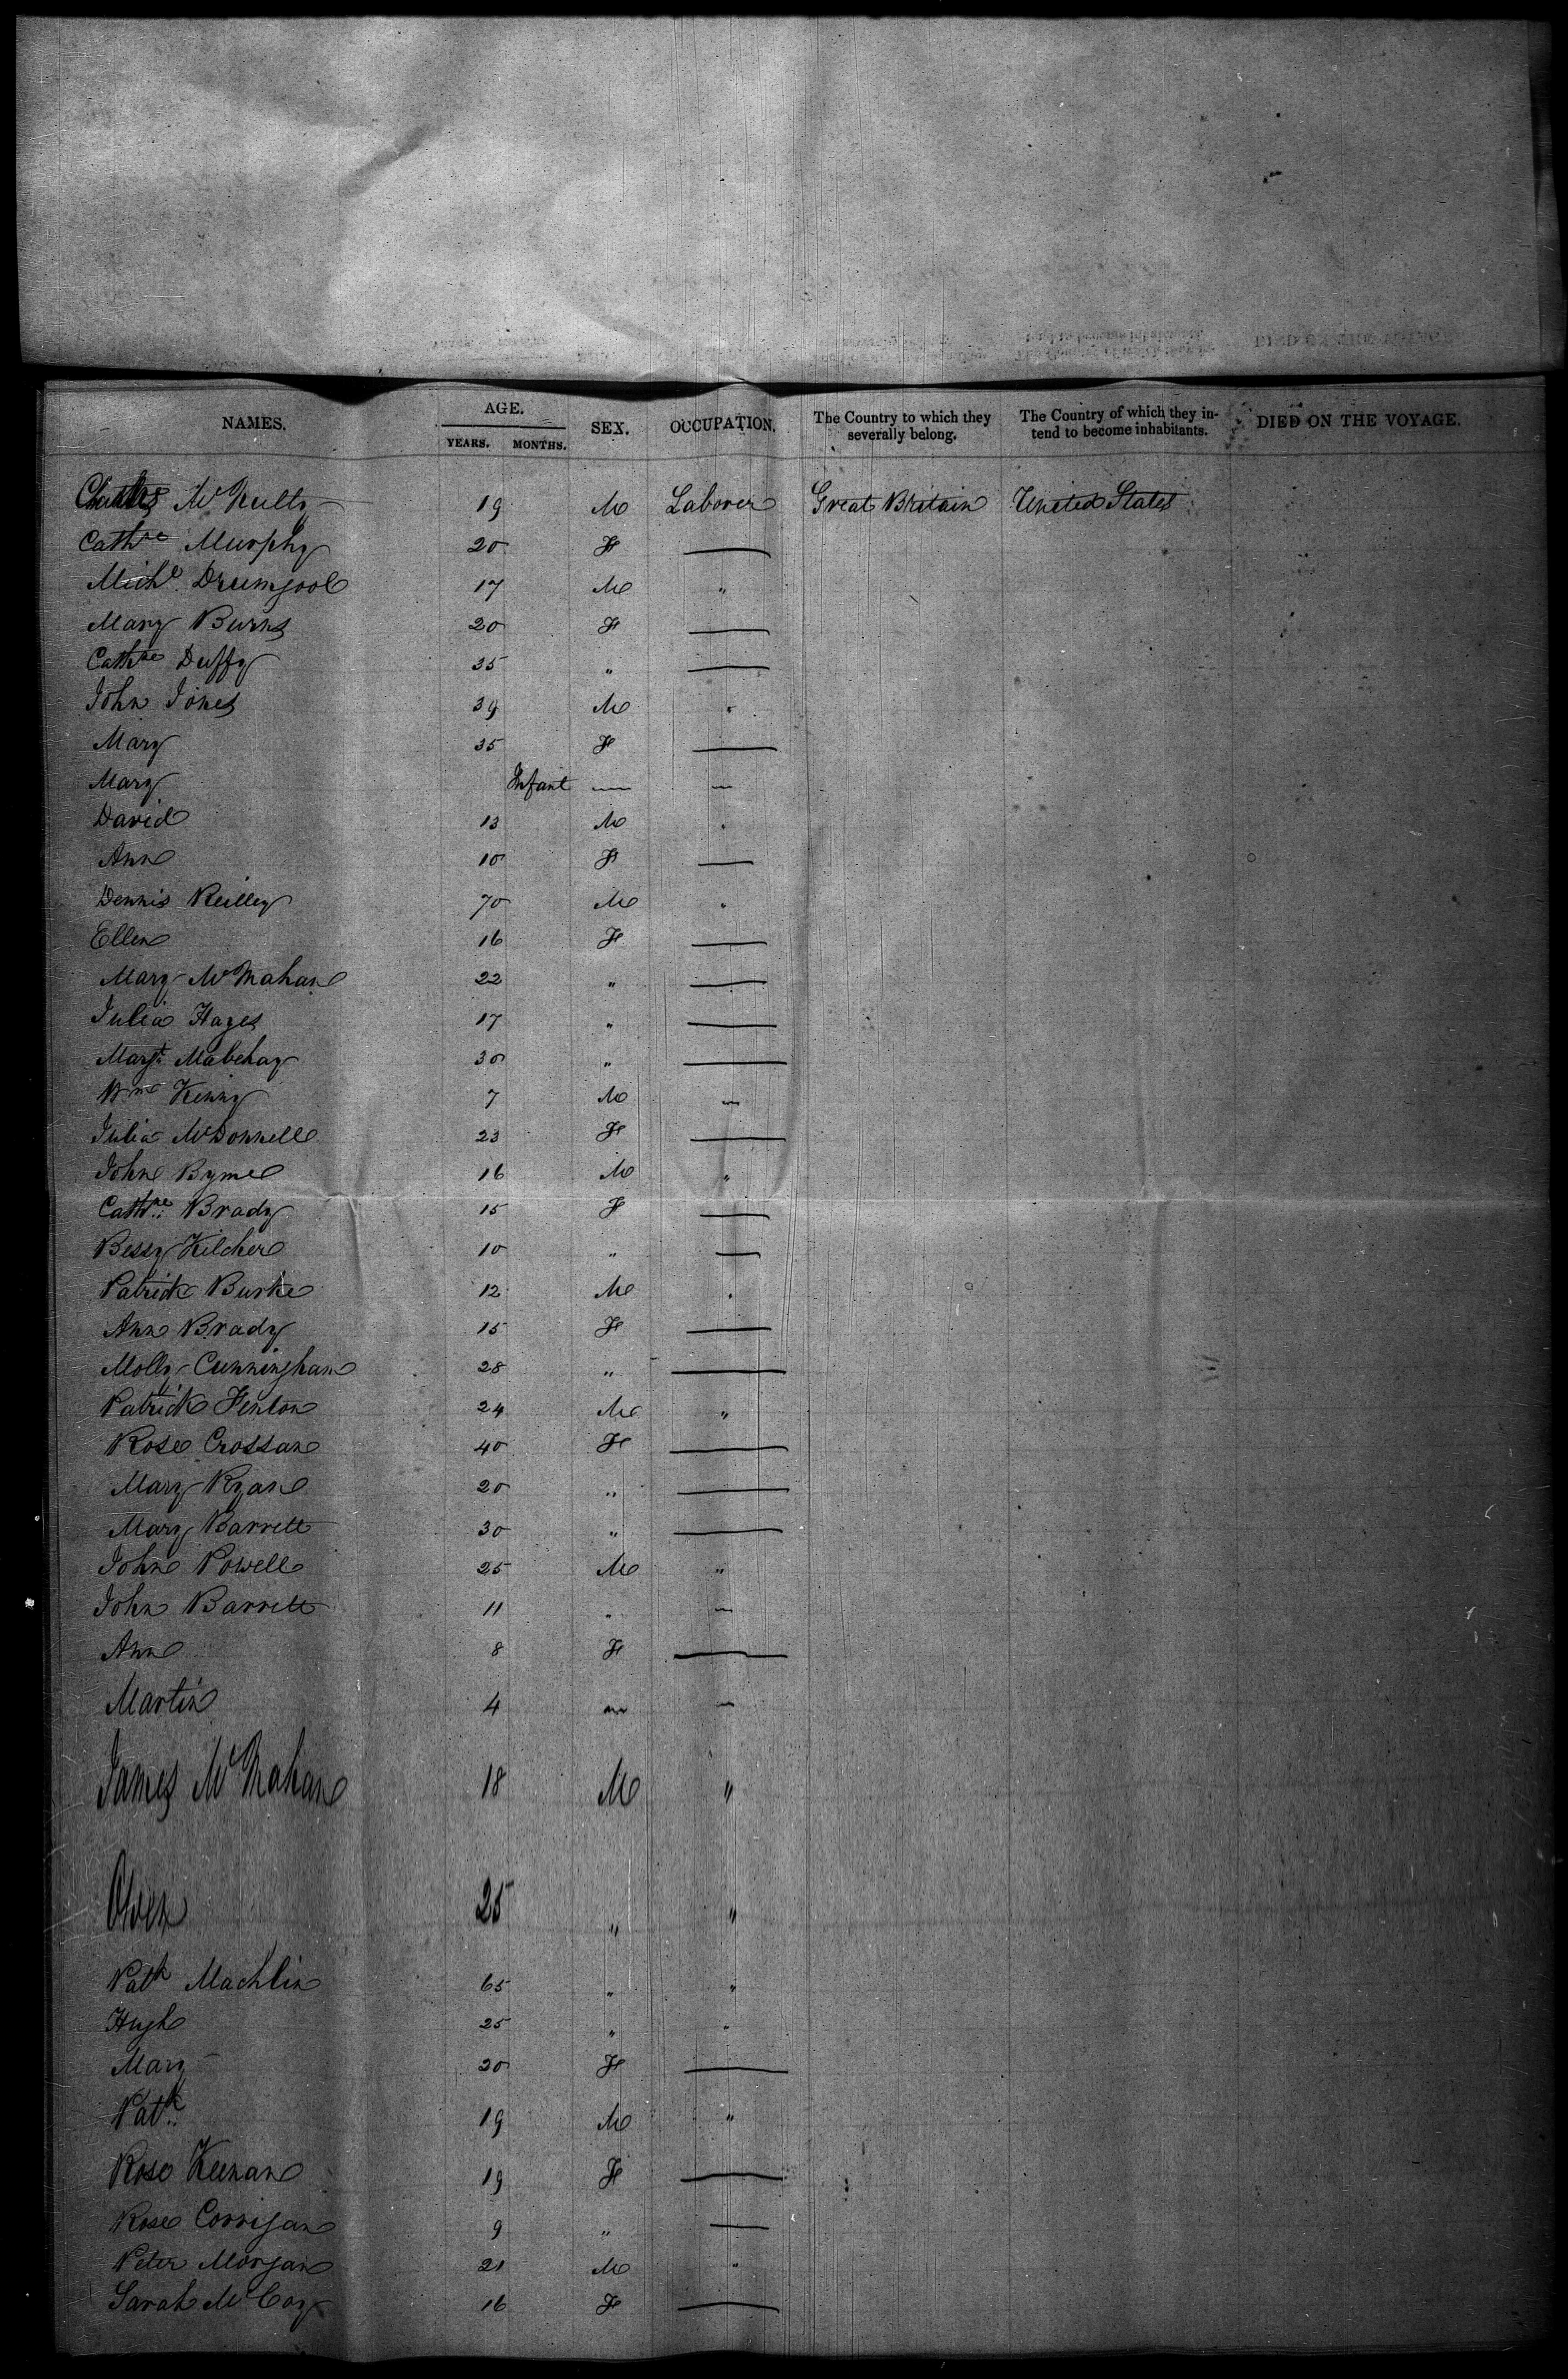 NAMES. AGE. YEARS. MONTHS. SEX. OCCUPATION. The Country to which they severally belong. The Country of which they intend to become inhabitants. DIED ON THE VOYAGE.
Charles McNulty 19 M Laborer Great Britain United States
Cathne Murphy 20 F —
Michl Drumgool 17 M "
Mary Burns 20 F —
Cathne Duffy 35 " —
John Jones 39 M "
Mary 35 F —
Mary Infant — —
David 13 M "
Ann 10 F —
Dennis Reilley 70 M "
Ellen 16 F —
Mary McMahan 22 " —
Julia Hayes 17 " —
Margt Mabehay 30 " —
Wm Kenny 7 M —
Julia McDonnell 23 F —
John Byrne 16 M "
Cathne Brady 15 F —
Bessy Kilcher 10 " —
Patrick Burke 12 M "
Ann Brady 15 F —
Molly Cunningham 28 " —
Patrick Fenton 24 M "
Rose Crossan 40 F —
Mary Ryan 20 " —
Mary Barrett 30 " —
John Powell 25 M "
John Barrett 11 " —
Ann 8 F —
Martin 4 — —
James McMahan 18 M "
Owen 25 " "
Patk Machlin 65 " "
Hugh 25 " "
Mary 20 F —
Patk 19 M "
Rose Keenan 19 F —
Rose Corrigan 9 " —
Peter Morgan 21 M "
Sarah McCoy 16 F —